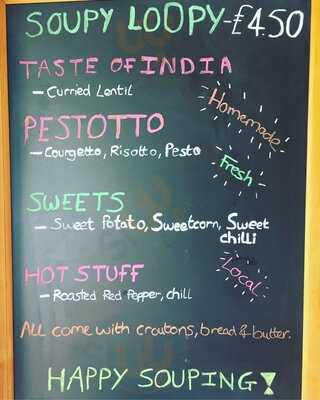 SOUPY LOOPY-£4.50
TASTE OF INDIA
- Curried Lentil
Homemade
PESTOTTO
- Courgette, Risotto, Pesto
Fresh
SWEETS
- Sweet Potato, Sweetcorn, Sweet
chilli
Local
HOT STUFF
- Roasted Red Pepper, Chilli
All come with croutons, bread & butter.
HAPPY SOUPING!